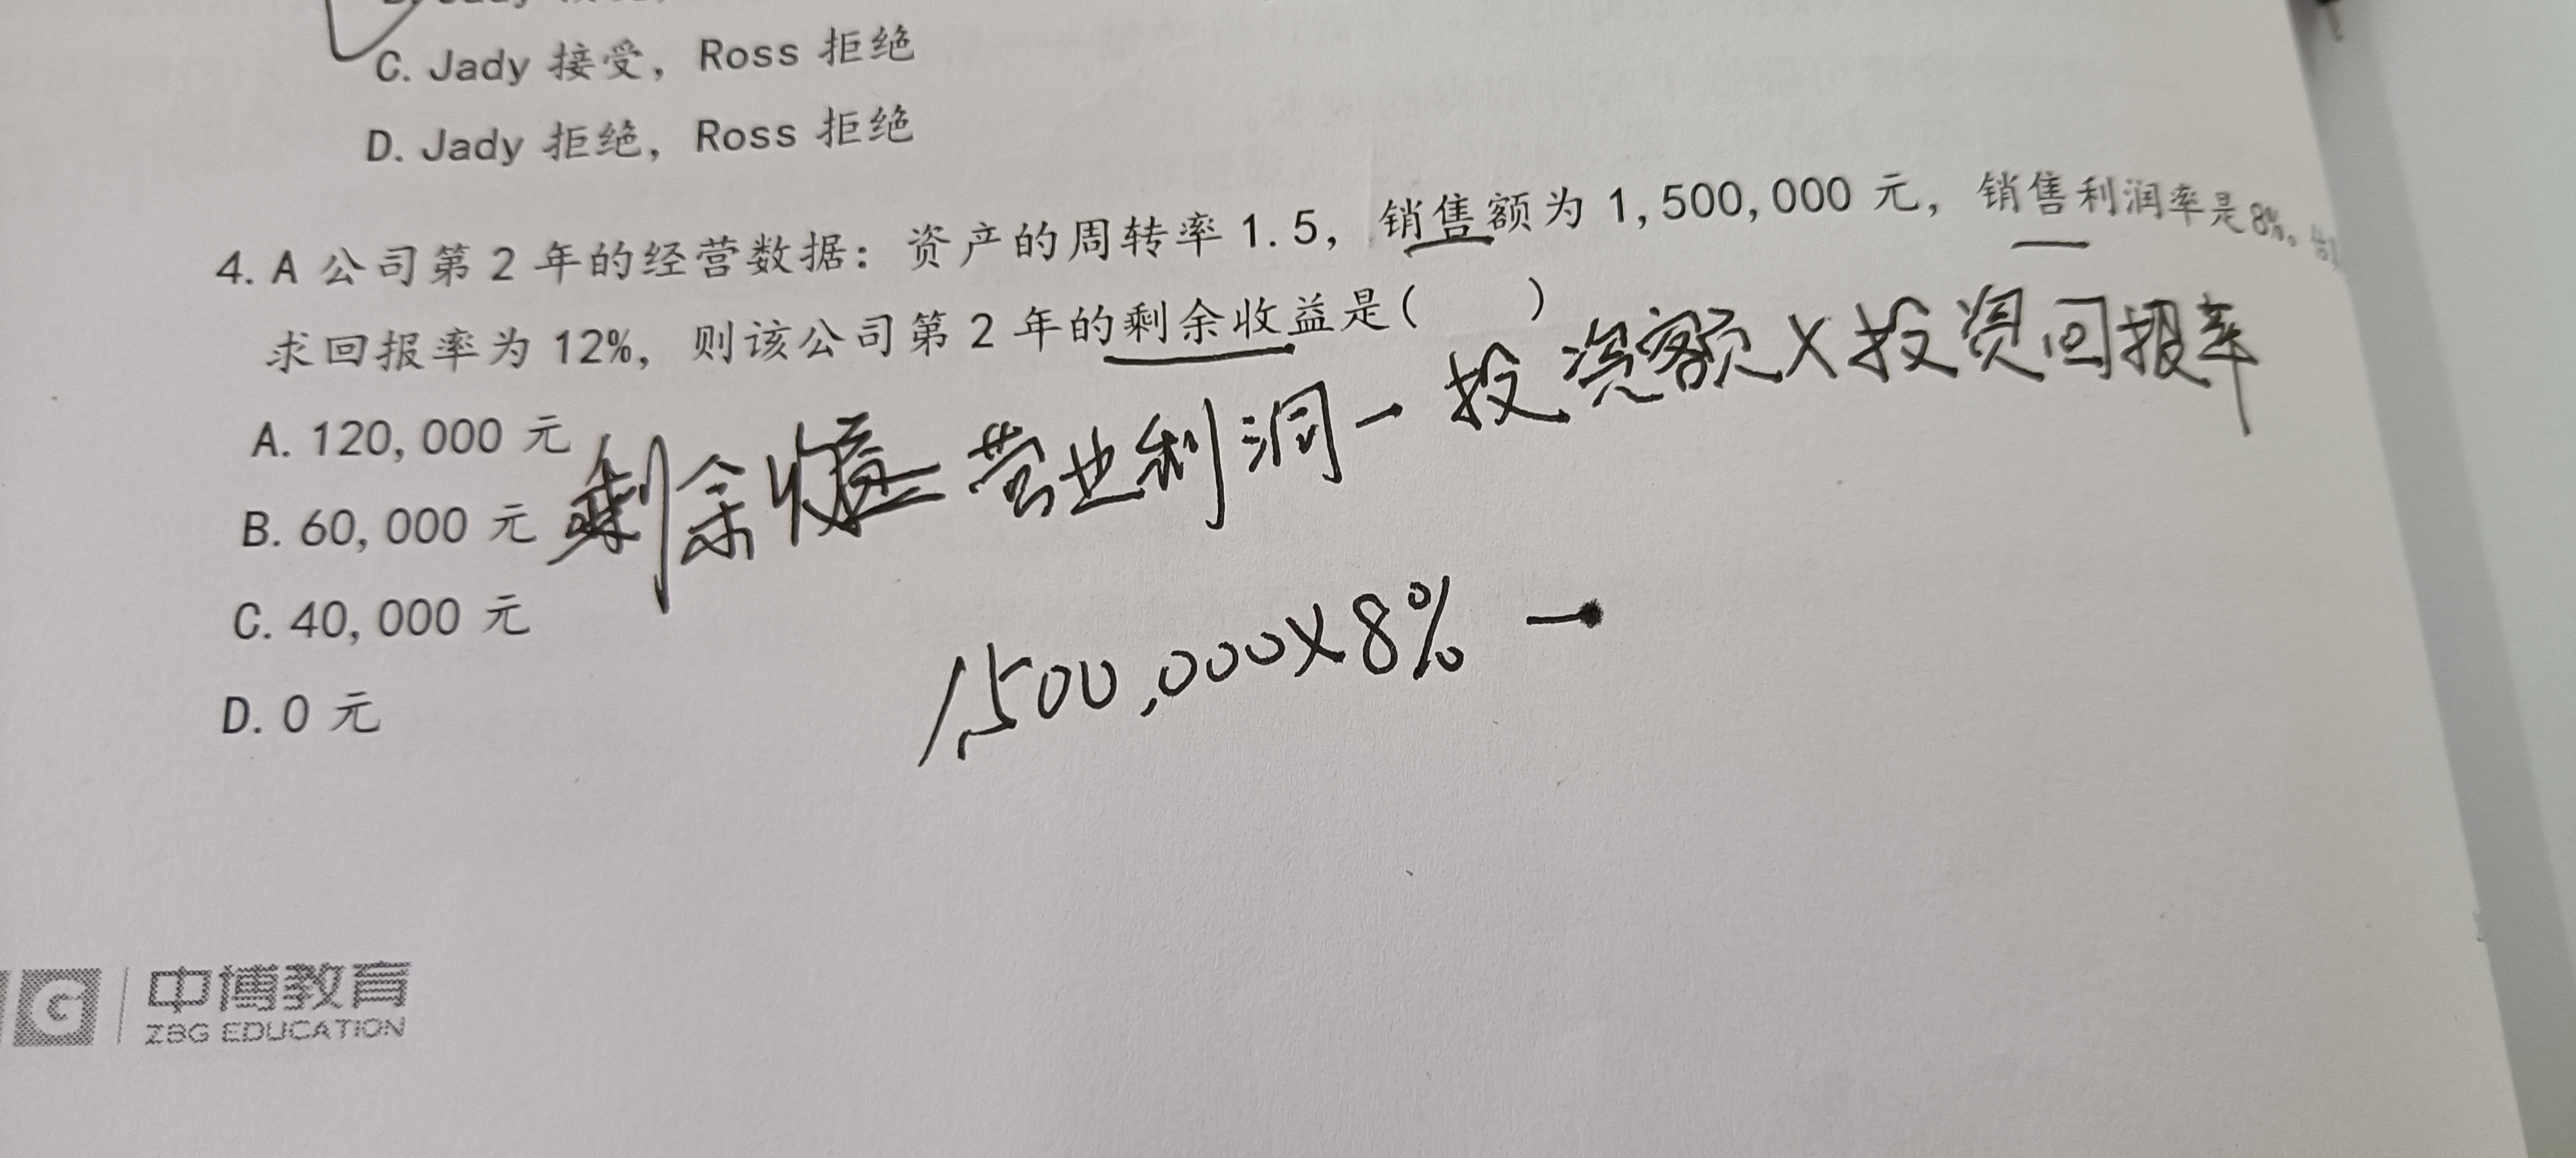 C. Jady 接受，Ross 拒绝
D. Jady 拒绝，Ross 拒绝
4. A 公司第 2 年的经营数据：资产的周转率 1.5，销售额为 1,500,000 元，销售利润率是 8%。
求回报率为 12%，则该公司第 2 年的剩余收益是（　　）
A. 120,000 元
剩余收益=营业利润-投资额×投资回报率
B. 60,000 元
C. 40,000 元
1,500,000×8% -
D. 0 元
G 中博教育
ZBG EDUCATION